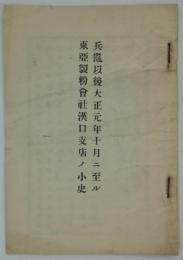 兵亂以後大正元年十月ニ至ル
東亞製粉會社漢口支店ノ小史